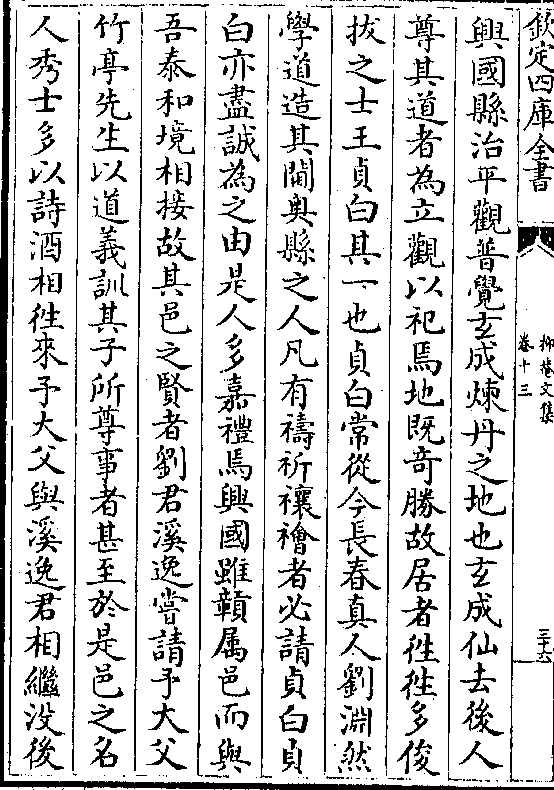 欽定四庫全書
抑菴文集
卷十三
三十六
興國縣治平觀普覺玄成煉丹之地也玄成仙去後人
尊其道者為立觀以祀焉地既奇勝故居者徃徃多俊
拔之士王貞白其一也貞白常從今長春真人劉淵然
學道造其閫奥縣之人凡有禱祈禳禬者必請貞白貞
白亦盡誠為之由是人多嘉禮焉興國雖贛属邑而與
吾泰和境相接故其邑之賢者劉君溪逸嘗請予大父
竹亭先生以道義訓其子所尊事者甚至於是邑之名
人秀士多以詩酒相徃來予大父與溪逸君相繼没後